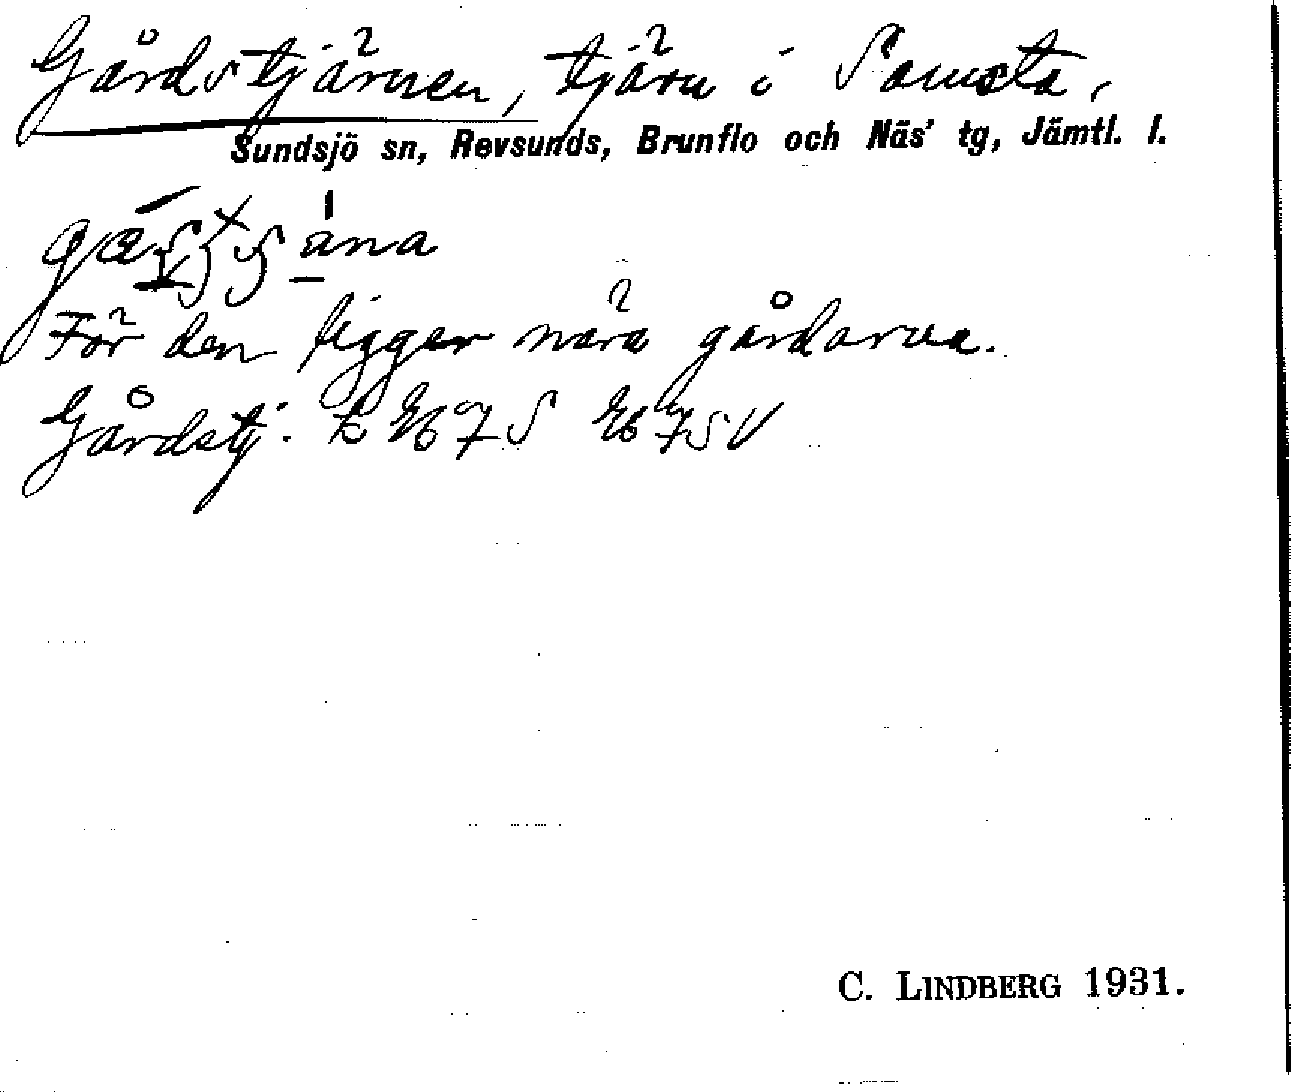 Gårdstjärnen, tjärn i Samsta,
Sundsjö sn, Revsunds, Brunflo och Näs' tg, Jämtl. l.
För den ligger nära gårdarna.
Gårdstj.
C. LINDBERG 1931.